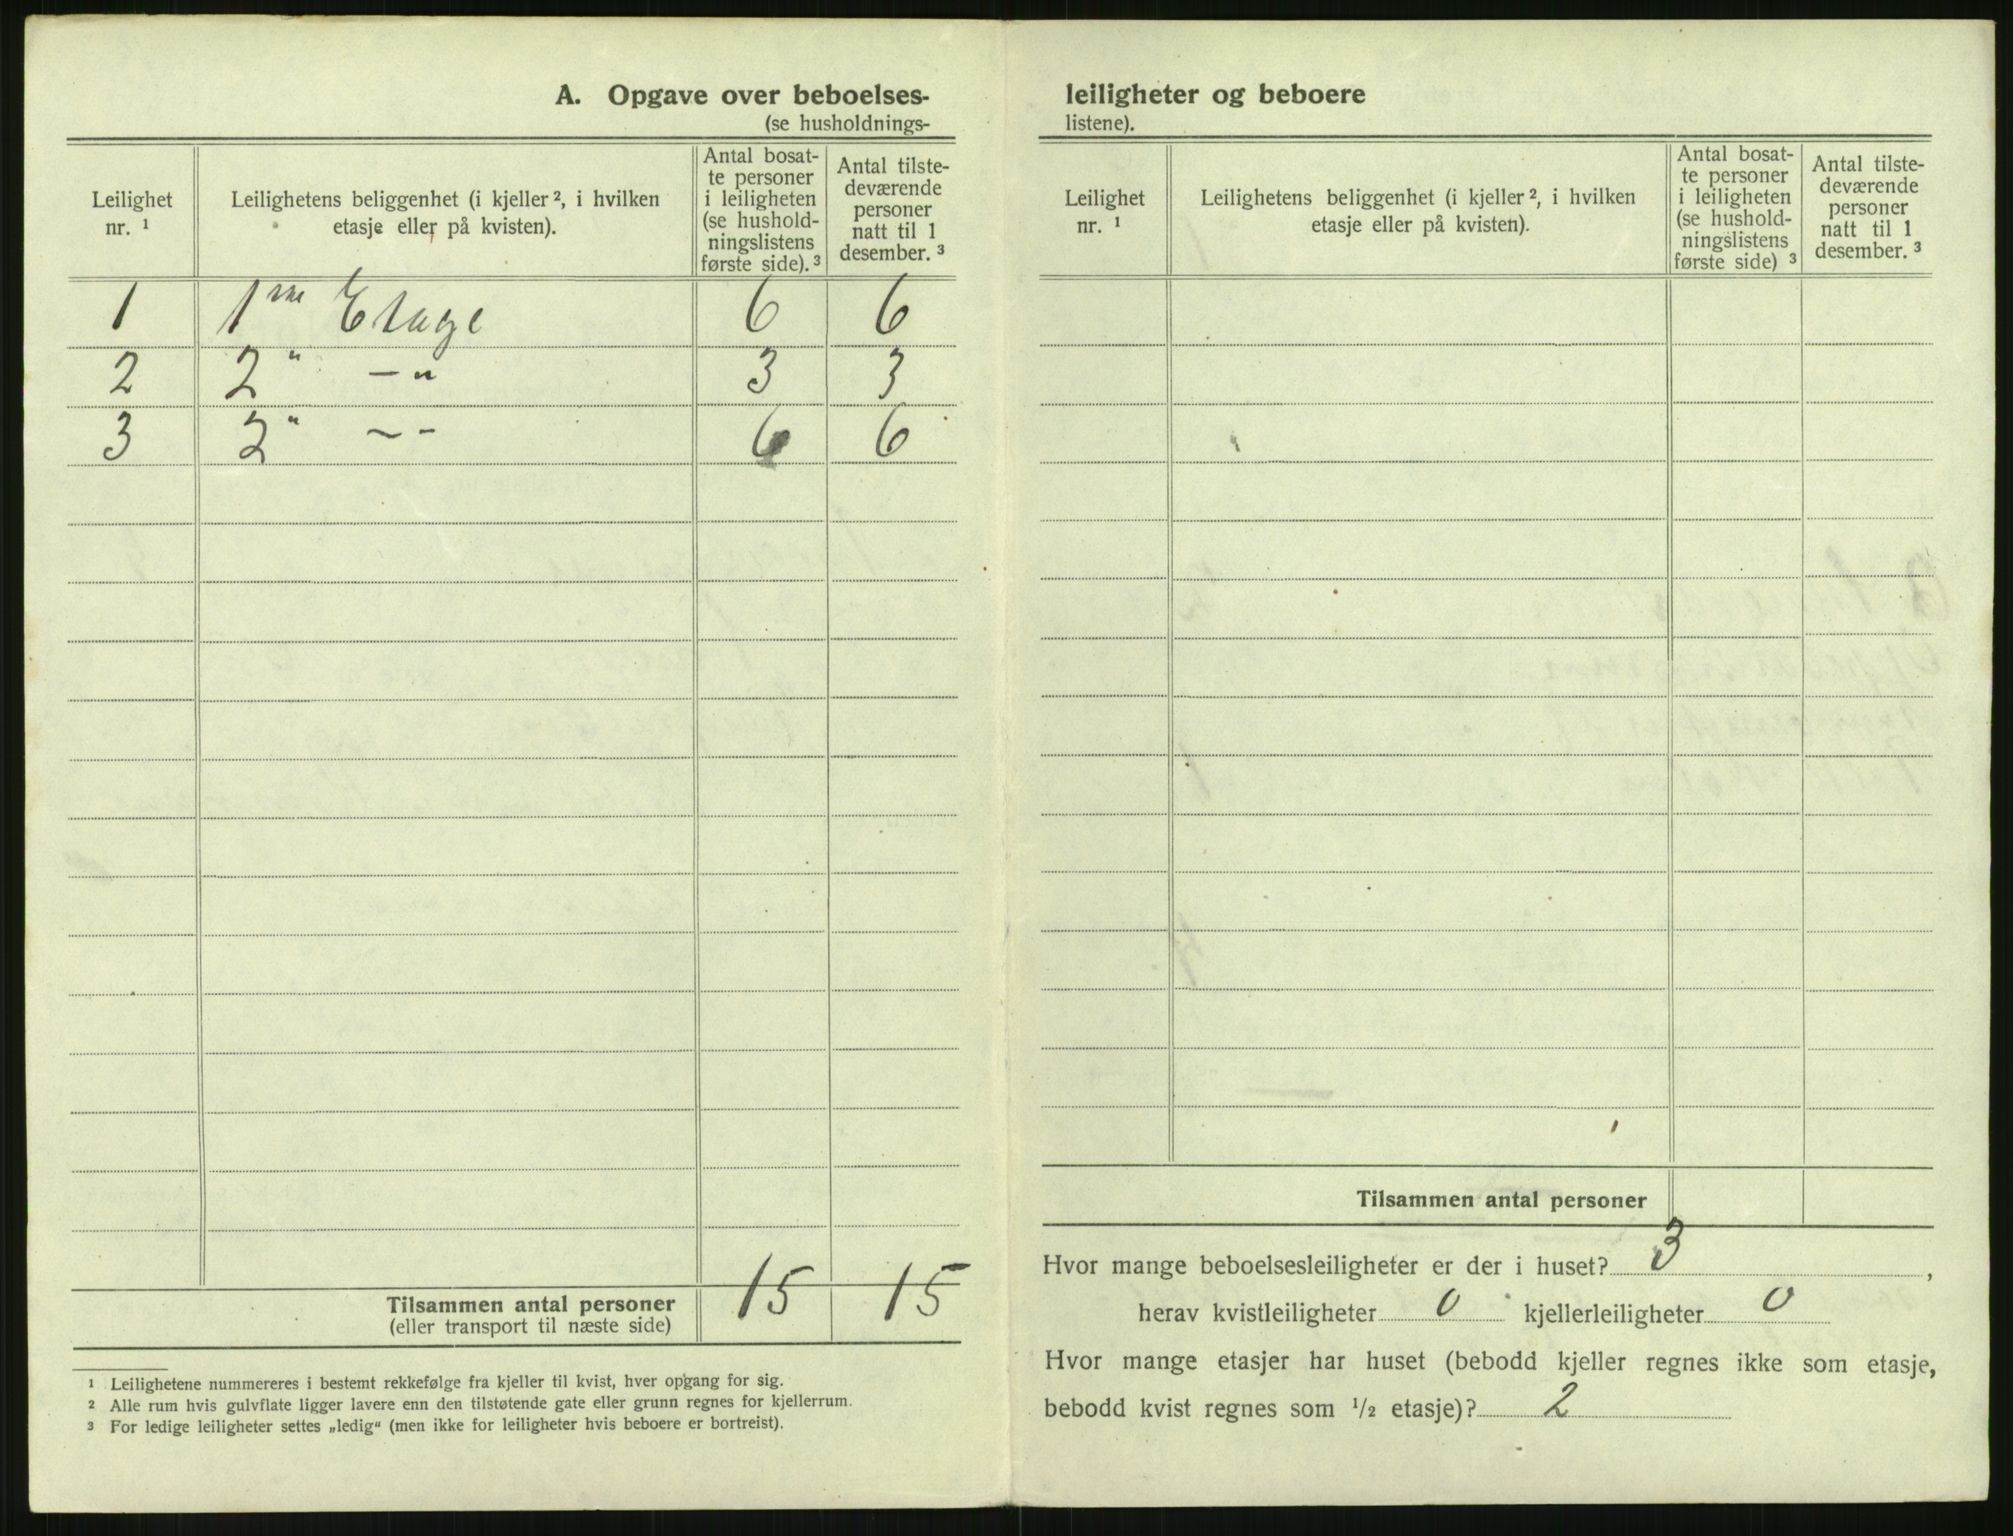 A. Opgave over beboelses-
(se husholdnings-
Leilighet nr. ¹
Leilighetens beliggenhet (i kjeller ², i hvilken etasje eller på kvisten).
Antal bosat-
te personer
i leiligheten
(se hushold-
ningslistens
første side). ³
Antal tilste-
deværende
personer
natt til 1
desember. ³
1 1ste Etage 6 6
2 2 " — " 3 3
3 2 " — - 6 6
Tilsammen antal personer 15 15
(eller transport til næste side)
¹ Leilighetene nummereres i bestemt rekkefølge fra kjeller til kvist, hver opgang for sig.
² Alle rum hvis gulvflate ligger lavere enn den tilstøtende gate eller grunn regnes for kjellerrum.
³ For ledige leiligheter settes „ledig“ (men ikke for leiligheter hvis beboere er bortreist).
leiligheter og beboere
listene).
Leilighet nr. ¹
Leilighetens beliggenhet (i kjeller ², i hvilken etasje eller på kvisten).
Antal bosat-
te personer
i leiligheten
(se hushold-
ningslistens
første side) ³
Antal tilste-
deværende
personer
natt til 1
desember. ³
Tilsammen antal personer
Hvor mange beboelsesleiligheter er der i huset? 3,
herav kvistleiligheter 0 kjellerleiligheter 0
Hvor mange etasjer har huset (bebodd kjeller regnes ikke som etasje,
bebodd kvist regnes som ¹/₂ etasje)? 2